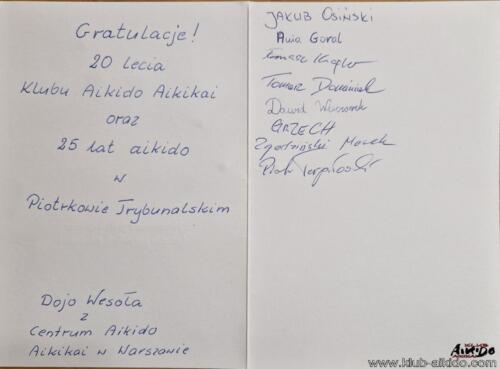 Gratulacje!
20 lecia
Klubu Aikido Aikikai
oraz
25 lat aikido
w
Piotrkowie Trybunalskim
Dojo Wesoła
z
Centrum Aikido
Aikikai w Warszawie
JAKUB OSIŃSKI
Ania Goral
Tomasz
Tomasz
Dawid
GRZECH
Marek
Piotr
AIKIDO
www.klub-aikido.com